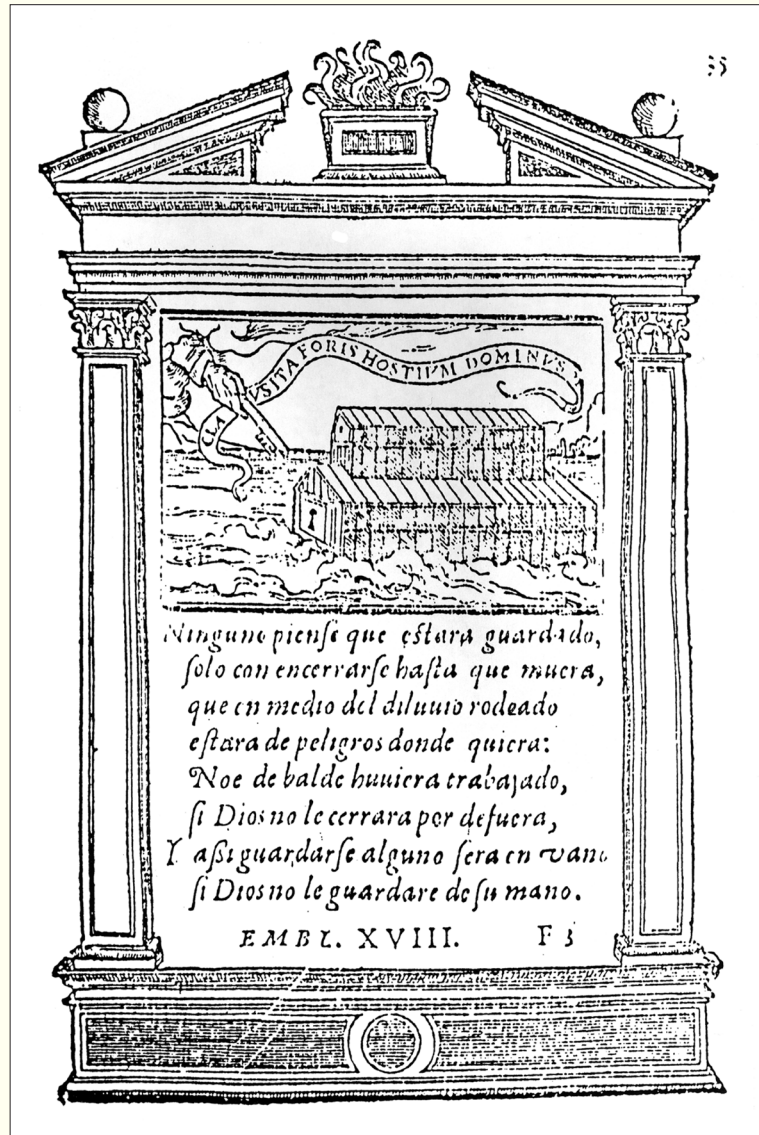 35
CLAVSIT A FORIS HOSTIVM DOMINVS
Ninguno piense que eſtara guardado,
ſolo con encerrarſe haſta que muera,
que en medio del diluuio rodeado
eſtara de peligros donde quiera:
Noe de balde huuiera trabajado,
ſi Dios no le cerrara por defuera,
Y aſsi guardarſe alguno ſera en vano
ſi Dios no le guardare de ſu mano.
EMBL. XVIII. F 3